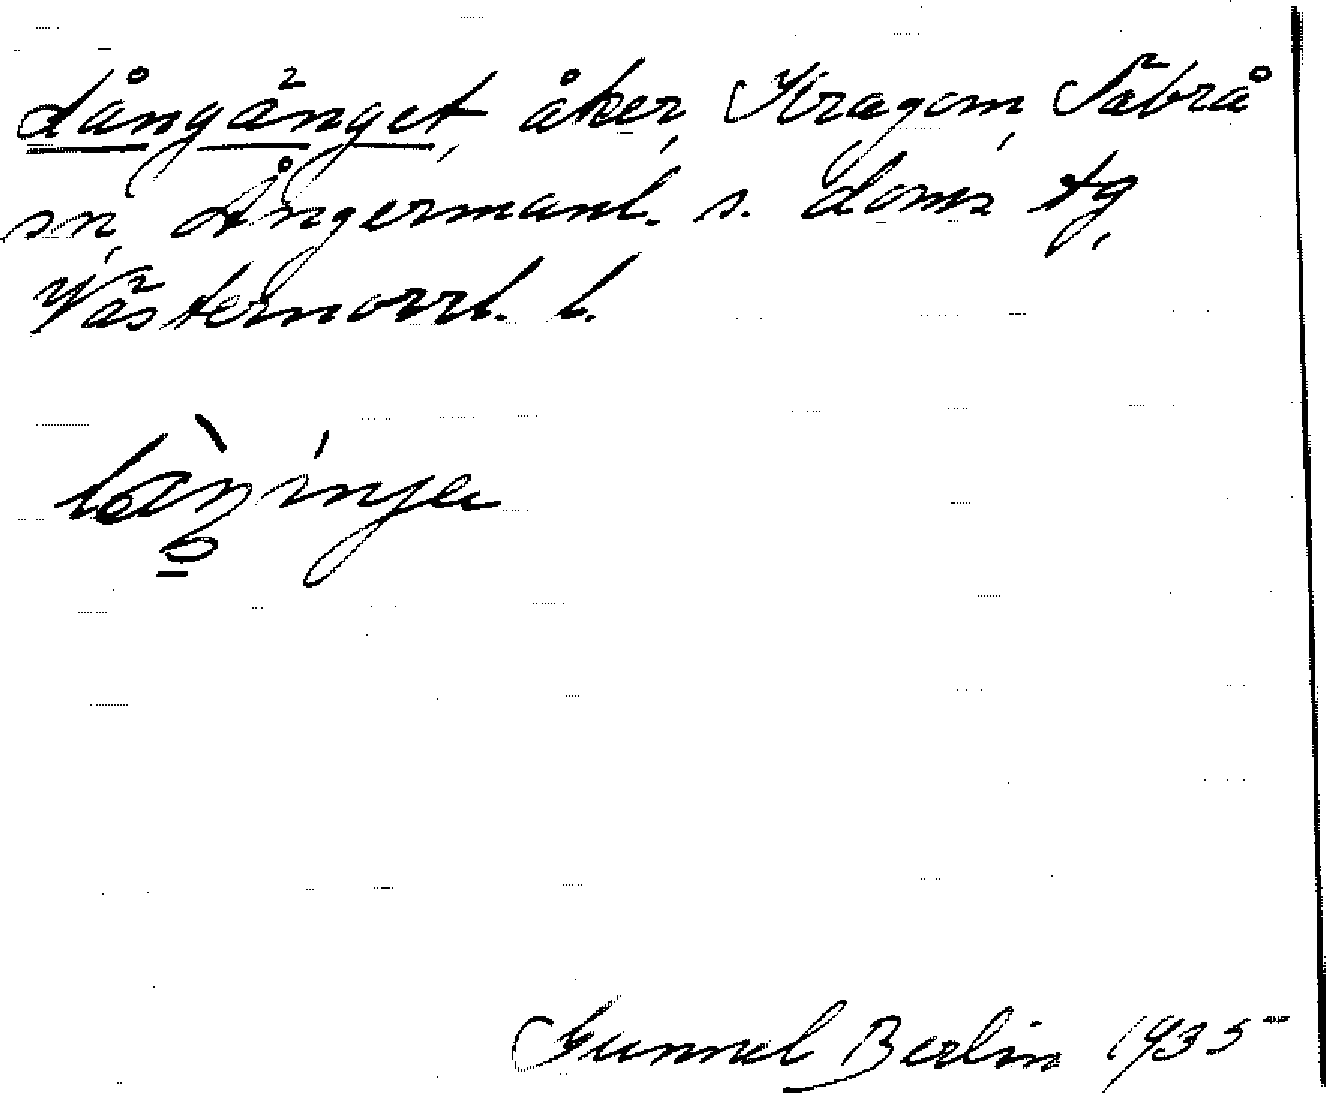 Långänget, åker, Kragom, Säbrå
sn, Ångermanl. s. doms tg,
Västernorrl. l.
Gunnel Berlin 1935